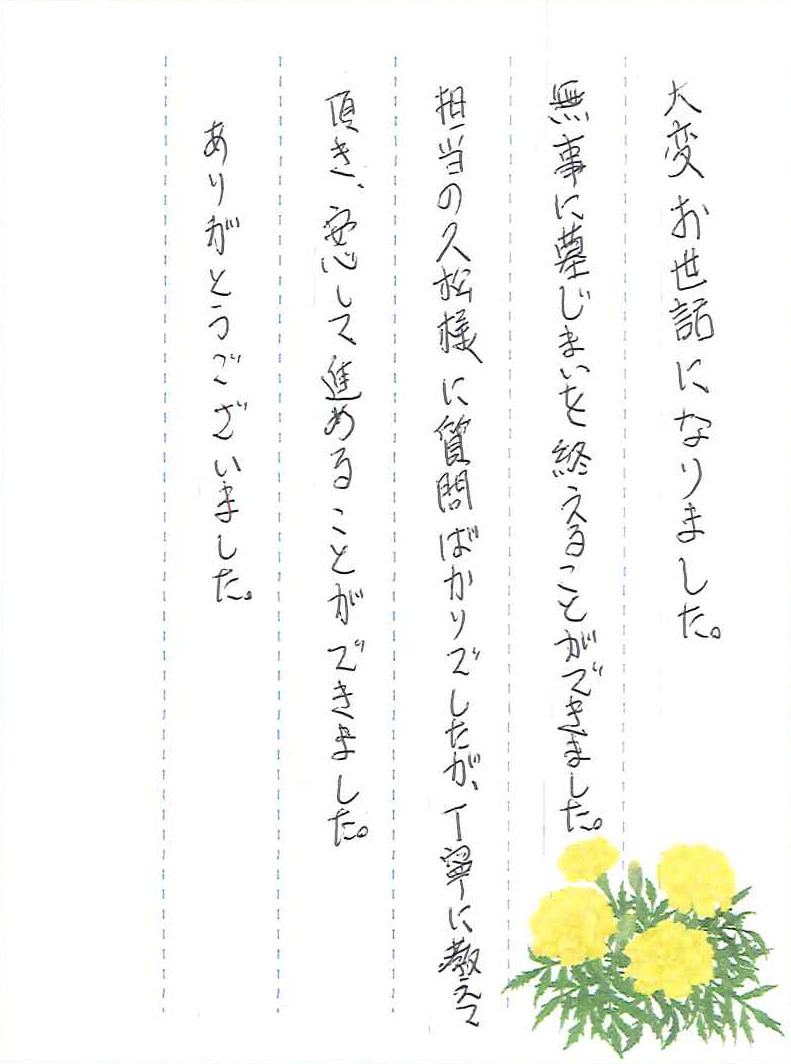 大変お世話になりました。
無事に墓じまいを終えることができました。
担当の久松様に質問ばかりでしたが、丁寧に教えて
頂き、安心して進めることができました。
ありがとうございました。